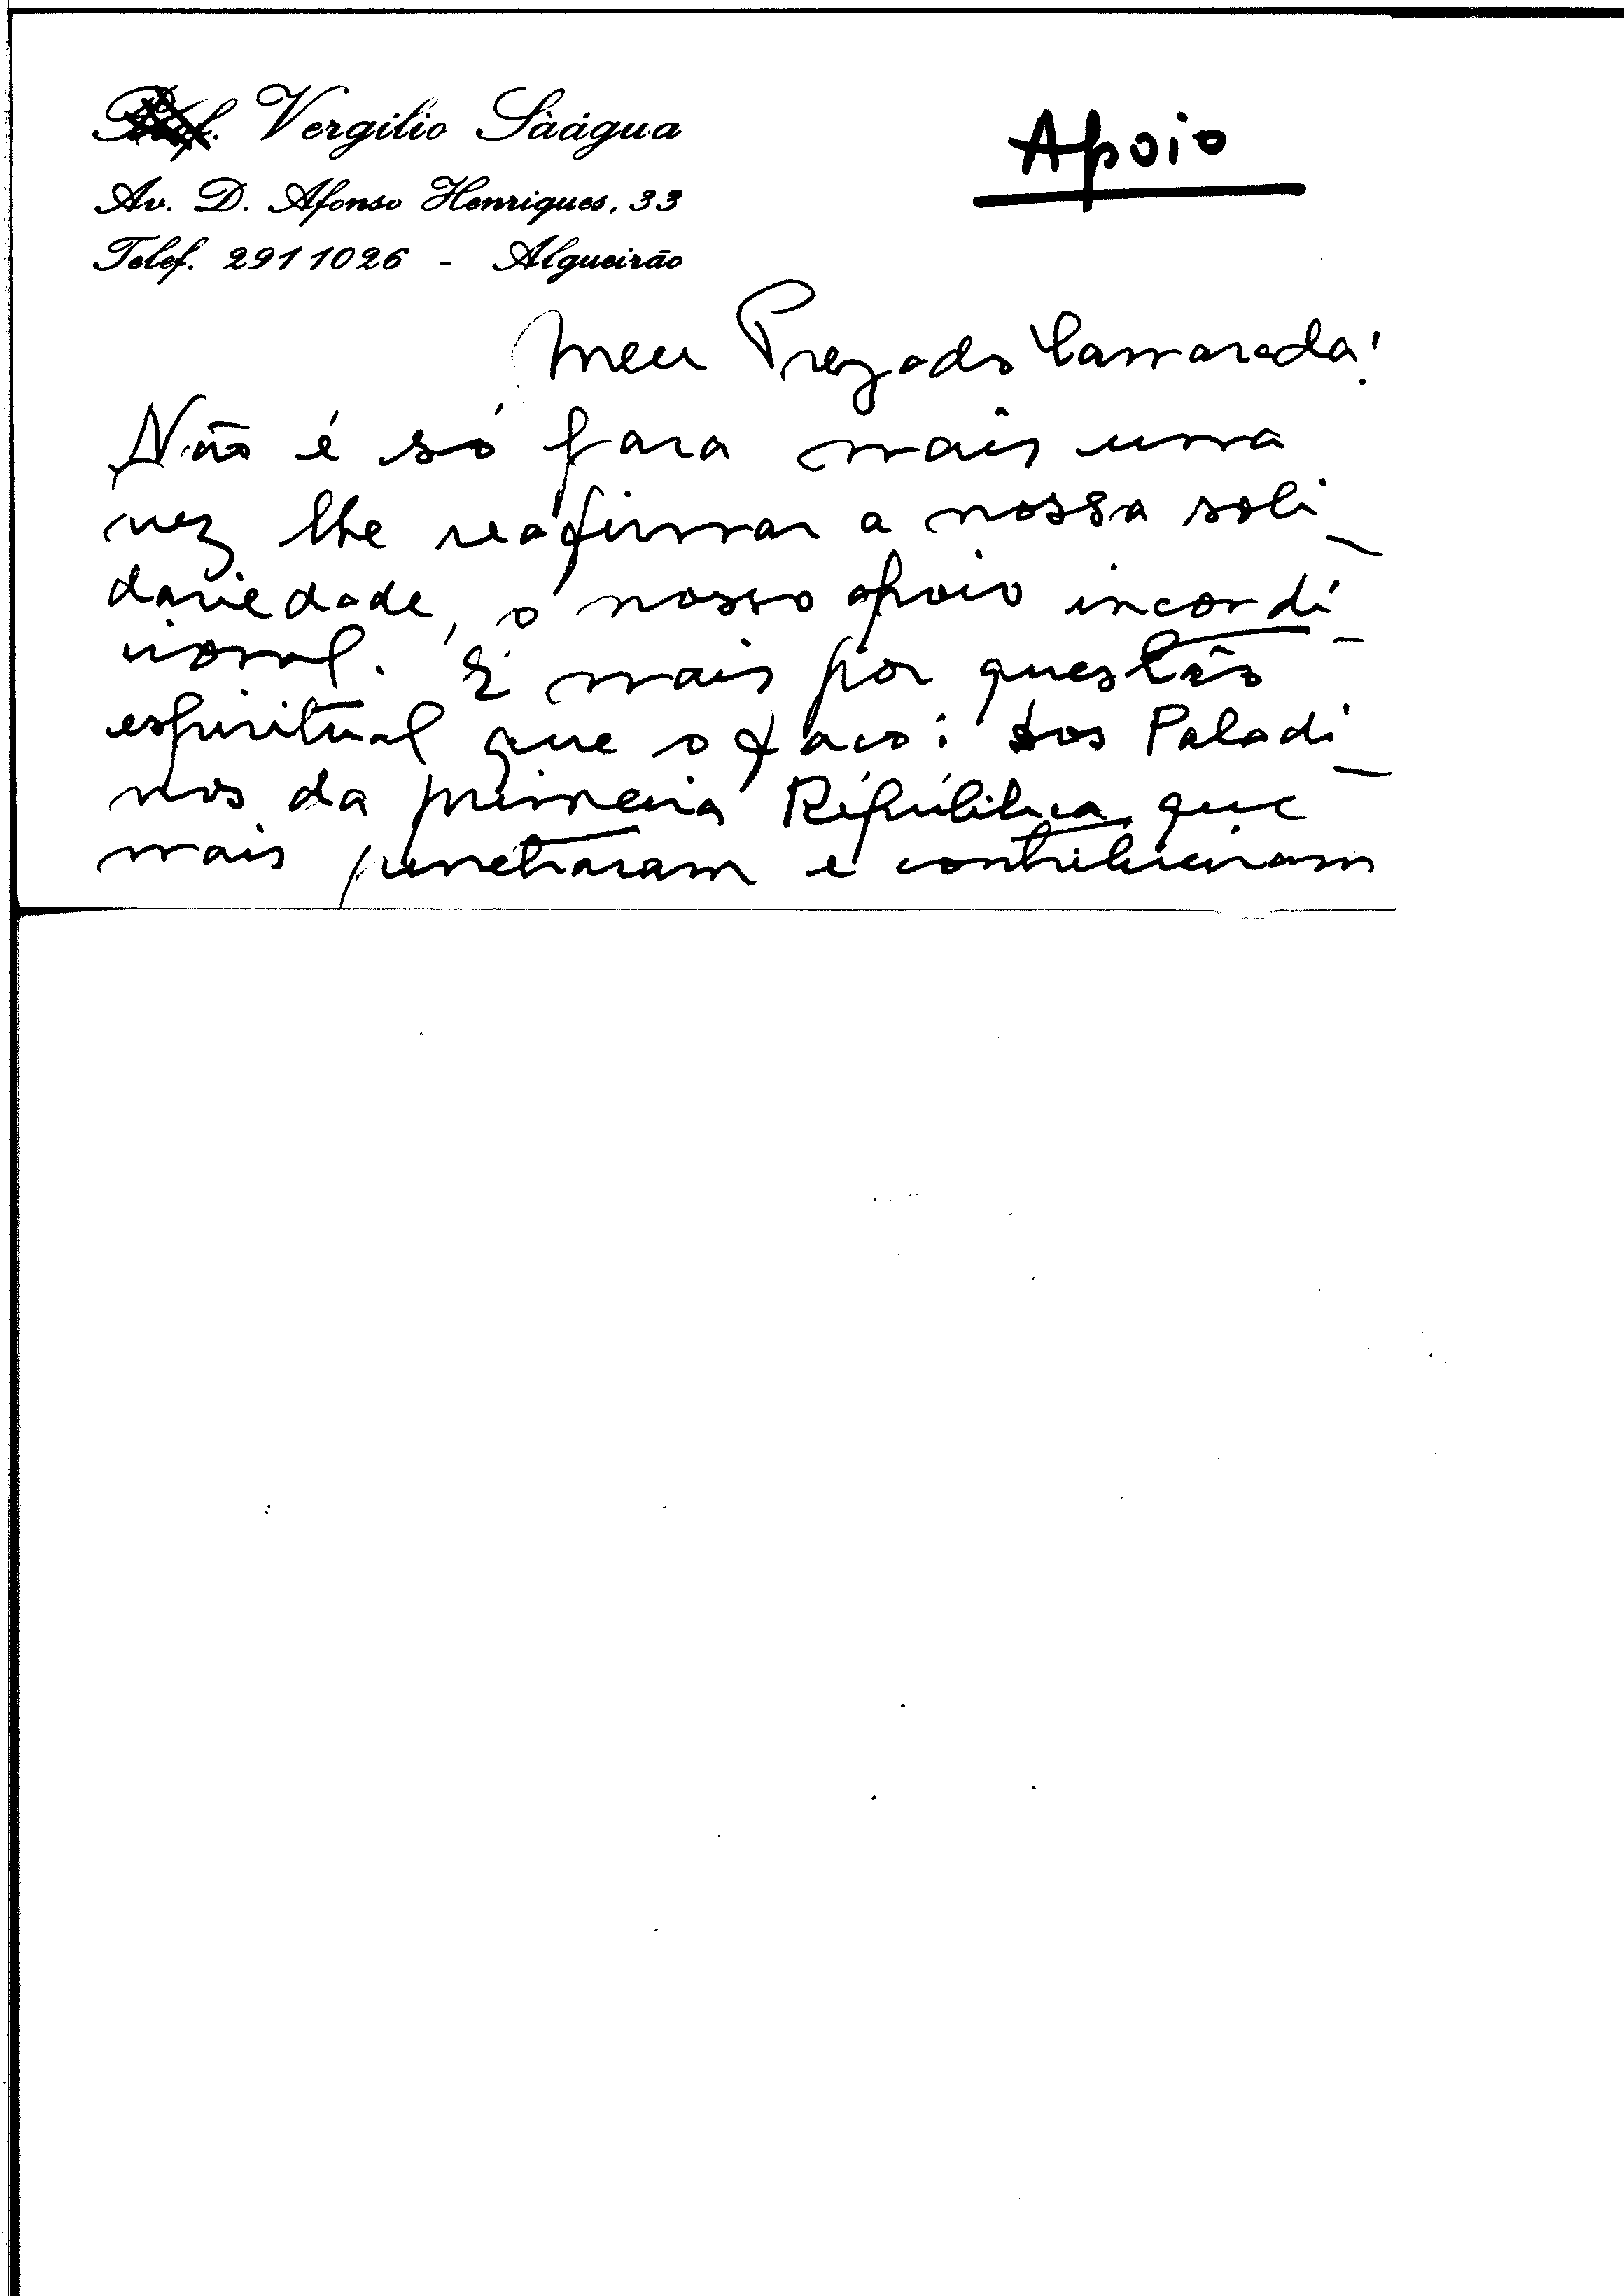 Prof. Vergilio Sàágua
Apoio
Av. D. Afonso Henriques, 33
Telef. 2911026 - Algueirão
Meu Prezado Camarada!
Não é só para mais uma
vez lhe reafirmar a nossa soli-
dariedade, o nosso apoio incondi-
cional. É mais por questão
espiritual que o faço: dos Paladi-
nos da primeira República que
mais penetraram e contribuiram